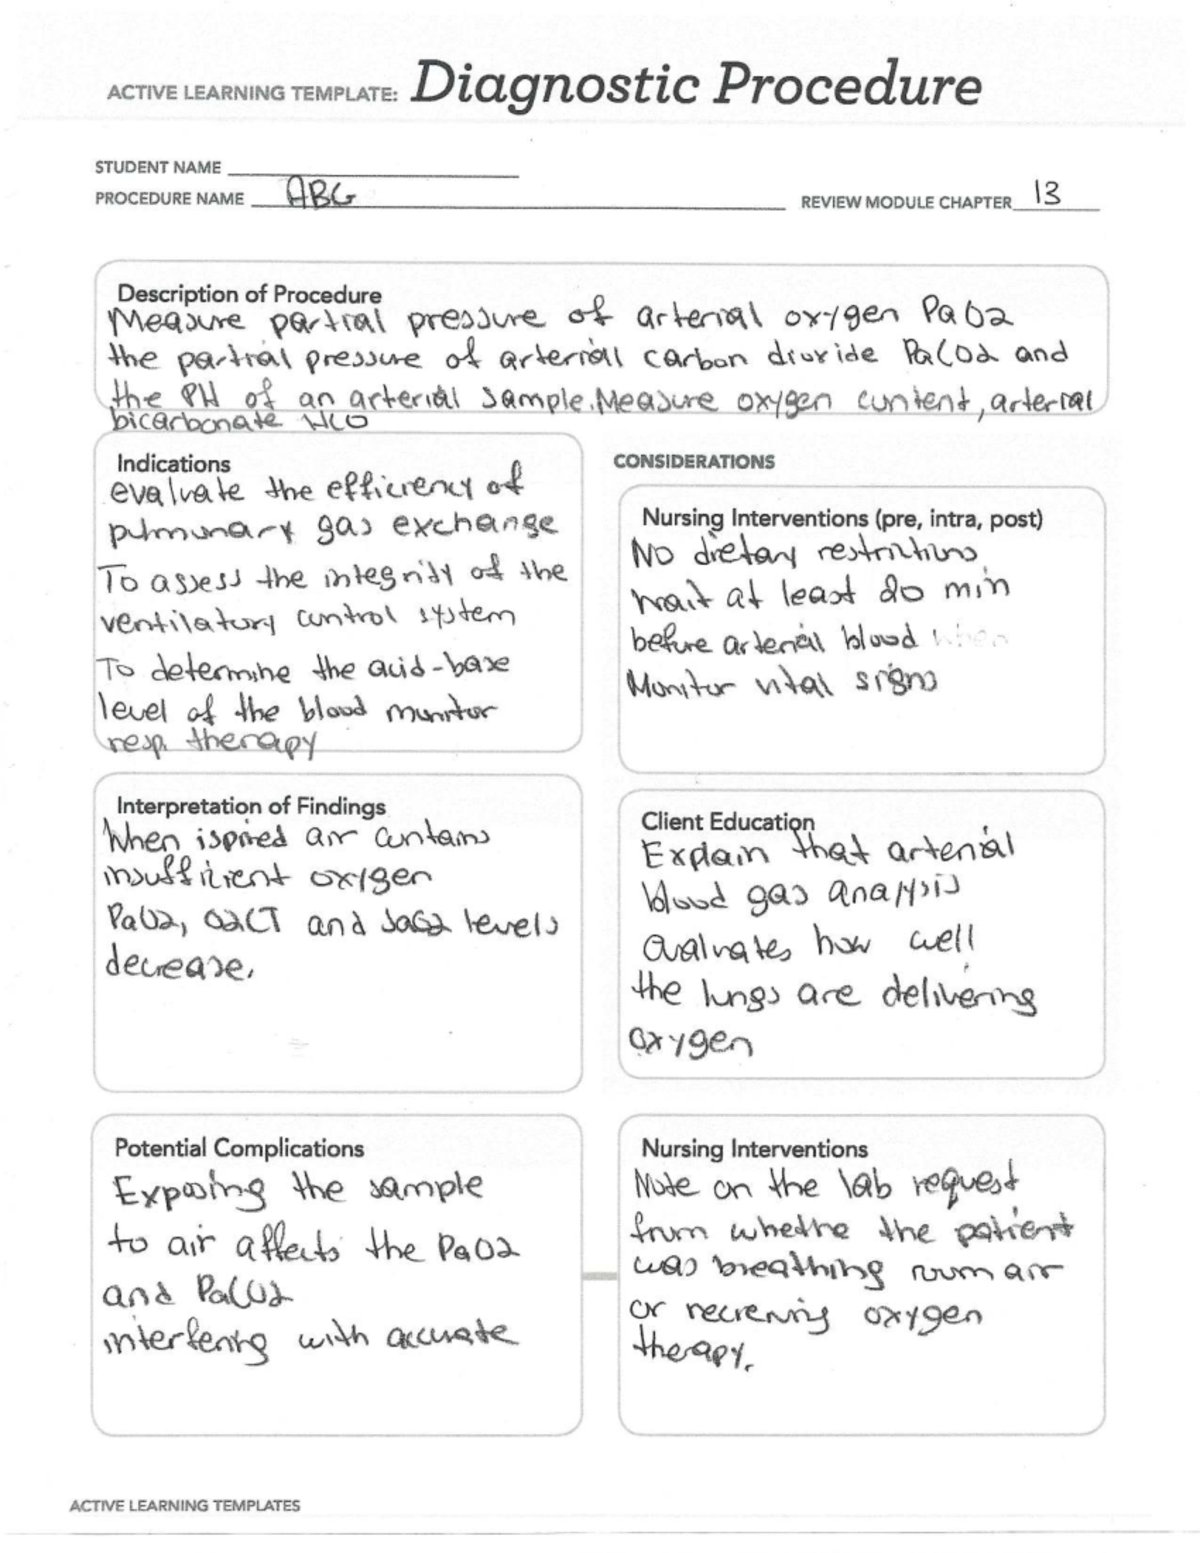 ACTIVE LEARNING TEMPLATE: Diagnostic Procedure
STUDENT NAME
PROCEDURE NAME ABG
REVIEW MODULE CHAPTER 13
Description of Procedure
Measure partial pressure of arterial oxygen PaO2
the partial pressure of arterial carbon dioxide PaCO2 and
the PH of an arterial sample. Measure oxygen content, arterial
bicarbonate HCO
Indications
evaluate the efficiency of
pulmunary gas exchange
To assess the integrity of the
ventilatory control system
To determine the acid-base
level of the blood monitor
resp. therapy
CONSIDERATIONS
Nursing Interventions (pre, intra, post)
No dietary restrictions
wait at least 20 min
before arterial blood when
Monitor vital signs
Interpretation of Findings
When ispired air contains
insufficient oxygen
PaO2, O2CT and SaO2 levels
decrease.
Client Education
Explain that arterial
blood gas analysis
evaluates how well
the lungs are delivering
oxygen
Potential Complications
Exposing the sample
to air affects the PaO2
and PaCO2
interfering with accurate
Nursing Interventions
Note on the lab request
from whethre the patient
was breathing room air
or recieving oxygen
therapy.
ACTIVE LEARNING TEMPLATES